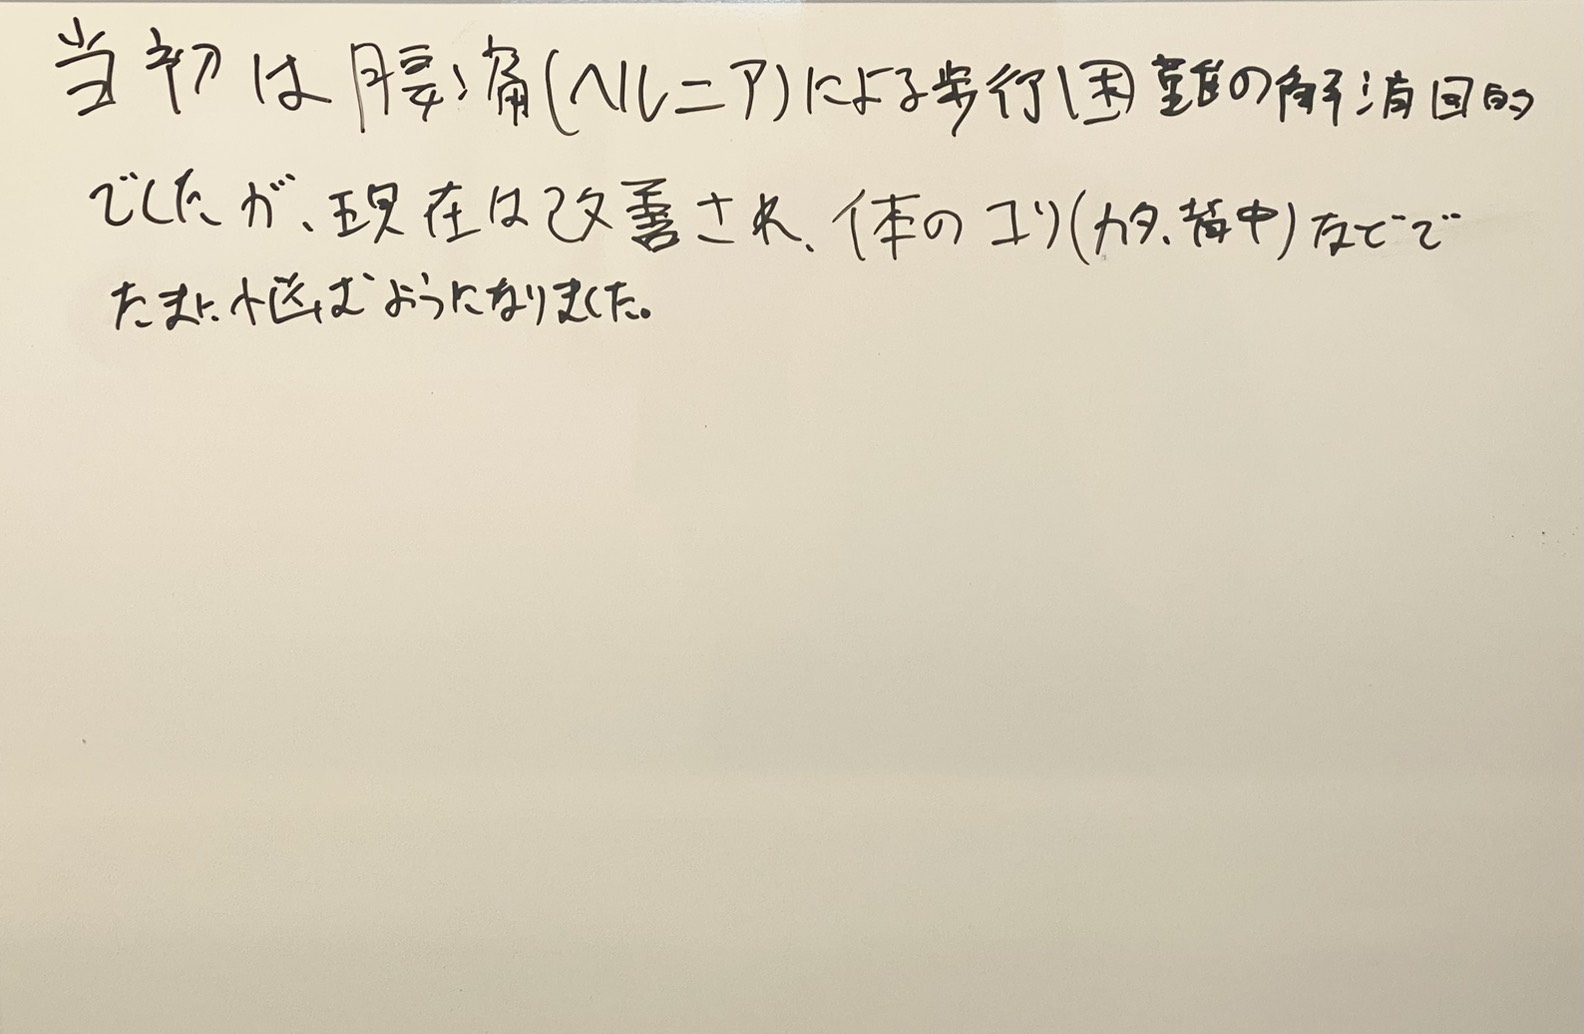 当初は腰痛(ヘルニア)による歩行困難の解消目的
でしたが、現在は改善され、体のコリ(カタ、背中)などで
たまに悩むようになりました。